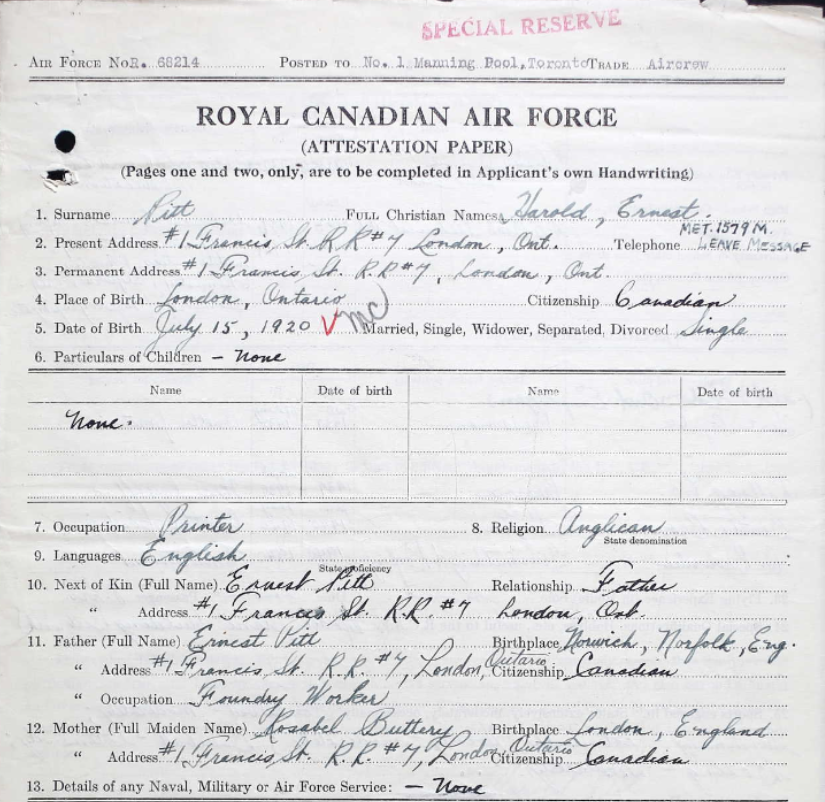 SPECIAL RESERVE
AIR FORCE No R. 68214 POSTED TO No. 1 Manning Pool, Toronto TRADE Aircrew
ROYAL CANADIAN AIR FORCE
(ATTESTATION PAPER)
(Pages one and two, only, are to be completed in Applicant's own Handwriting)
1. Surname Pitt FULL Christian Names Harold, Ernest.
MET. 1579 M.
2. Present Address #1 Francis St. R.R #7 London, Ont. Telephone LEAVE MESSAGE
3. Permanent Address #1 Francis St. R.R. #7, London, Ont.
4. Place of Birth London, Ontario Citizenship Canadian
5. Date of Birth July 15, 1920 Married, Single, Widower, Separated, Divorced Single
6. Particulars of Children - None
Name Date of birth Name Date of birth
None.
7. Occupation Printer 8. Religion Anglican
State denomination
9. Languages English
State proficiency
10. Next of Kin (Full Name) Ernest Pitt Relationship Father
" Address #1 Francis St. R.R. #7 London, Ont.
11. Father (Full Name) Ernest Pitt Birthplace Norwich, Norfolk, Eng.
" Address #1 Francis St. R.R. #7, London, Ontario Citizenship Canadian
" Occupation Foundry Worker
12. Mother (Full Maiden Name) Rosabel Buttery Birthplace London, England
" Address #1 Francis St. R.R. #7, London, Ontario Citizenship Canadian
13. Details of any Naval, Military or Air Force Service: - None